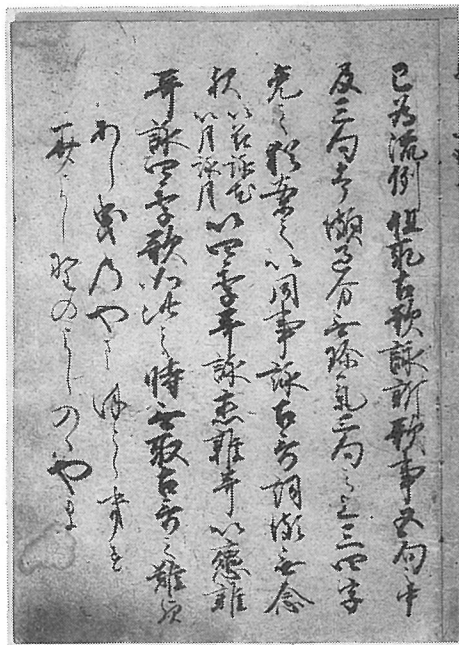 已為流例但取古歌詠新歌事五句之中
及三句者頗過分無珍氣二句之上三四字
免之猶案之以同事詠古哥詞頗無念
歟以花詠花以月詠月以四季哥詠恋雑哥以恋雑
哥詠四季歌如此之時無取古哥之難歟
あし曳乃やまほとゝきす
みよし野のよしのゝやま